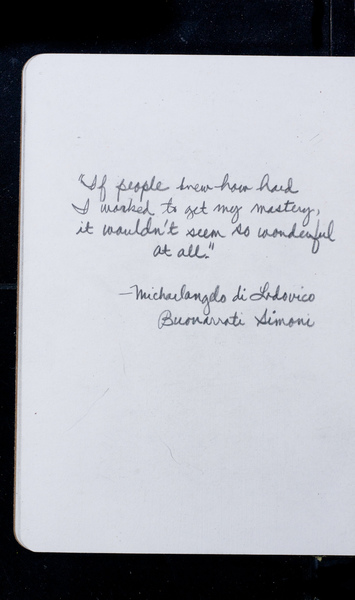 "If people knew how hard
I worked to get my mastery,
it wouldn't seem so wonderful
at all."
—Michaelangelo di Lodovico
Buonarroti Simoni